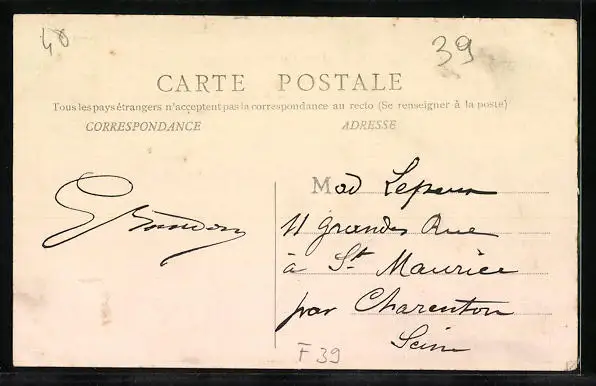 40
39
CARTE POSTALE
Tous les pays étrangers n'acceptent pas la correspondance au recto (Se renseigner à la poste)
CORRESPONDANCE ADRESSE
Mad
11 grandes Rue
à St Maurice
par Charenton
Seine
F 39